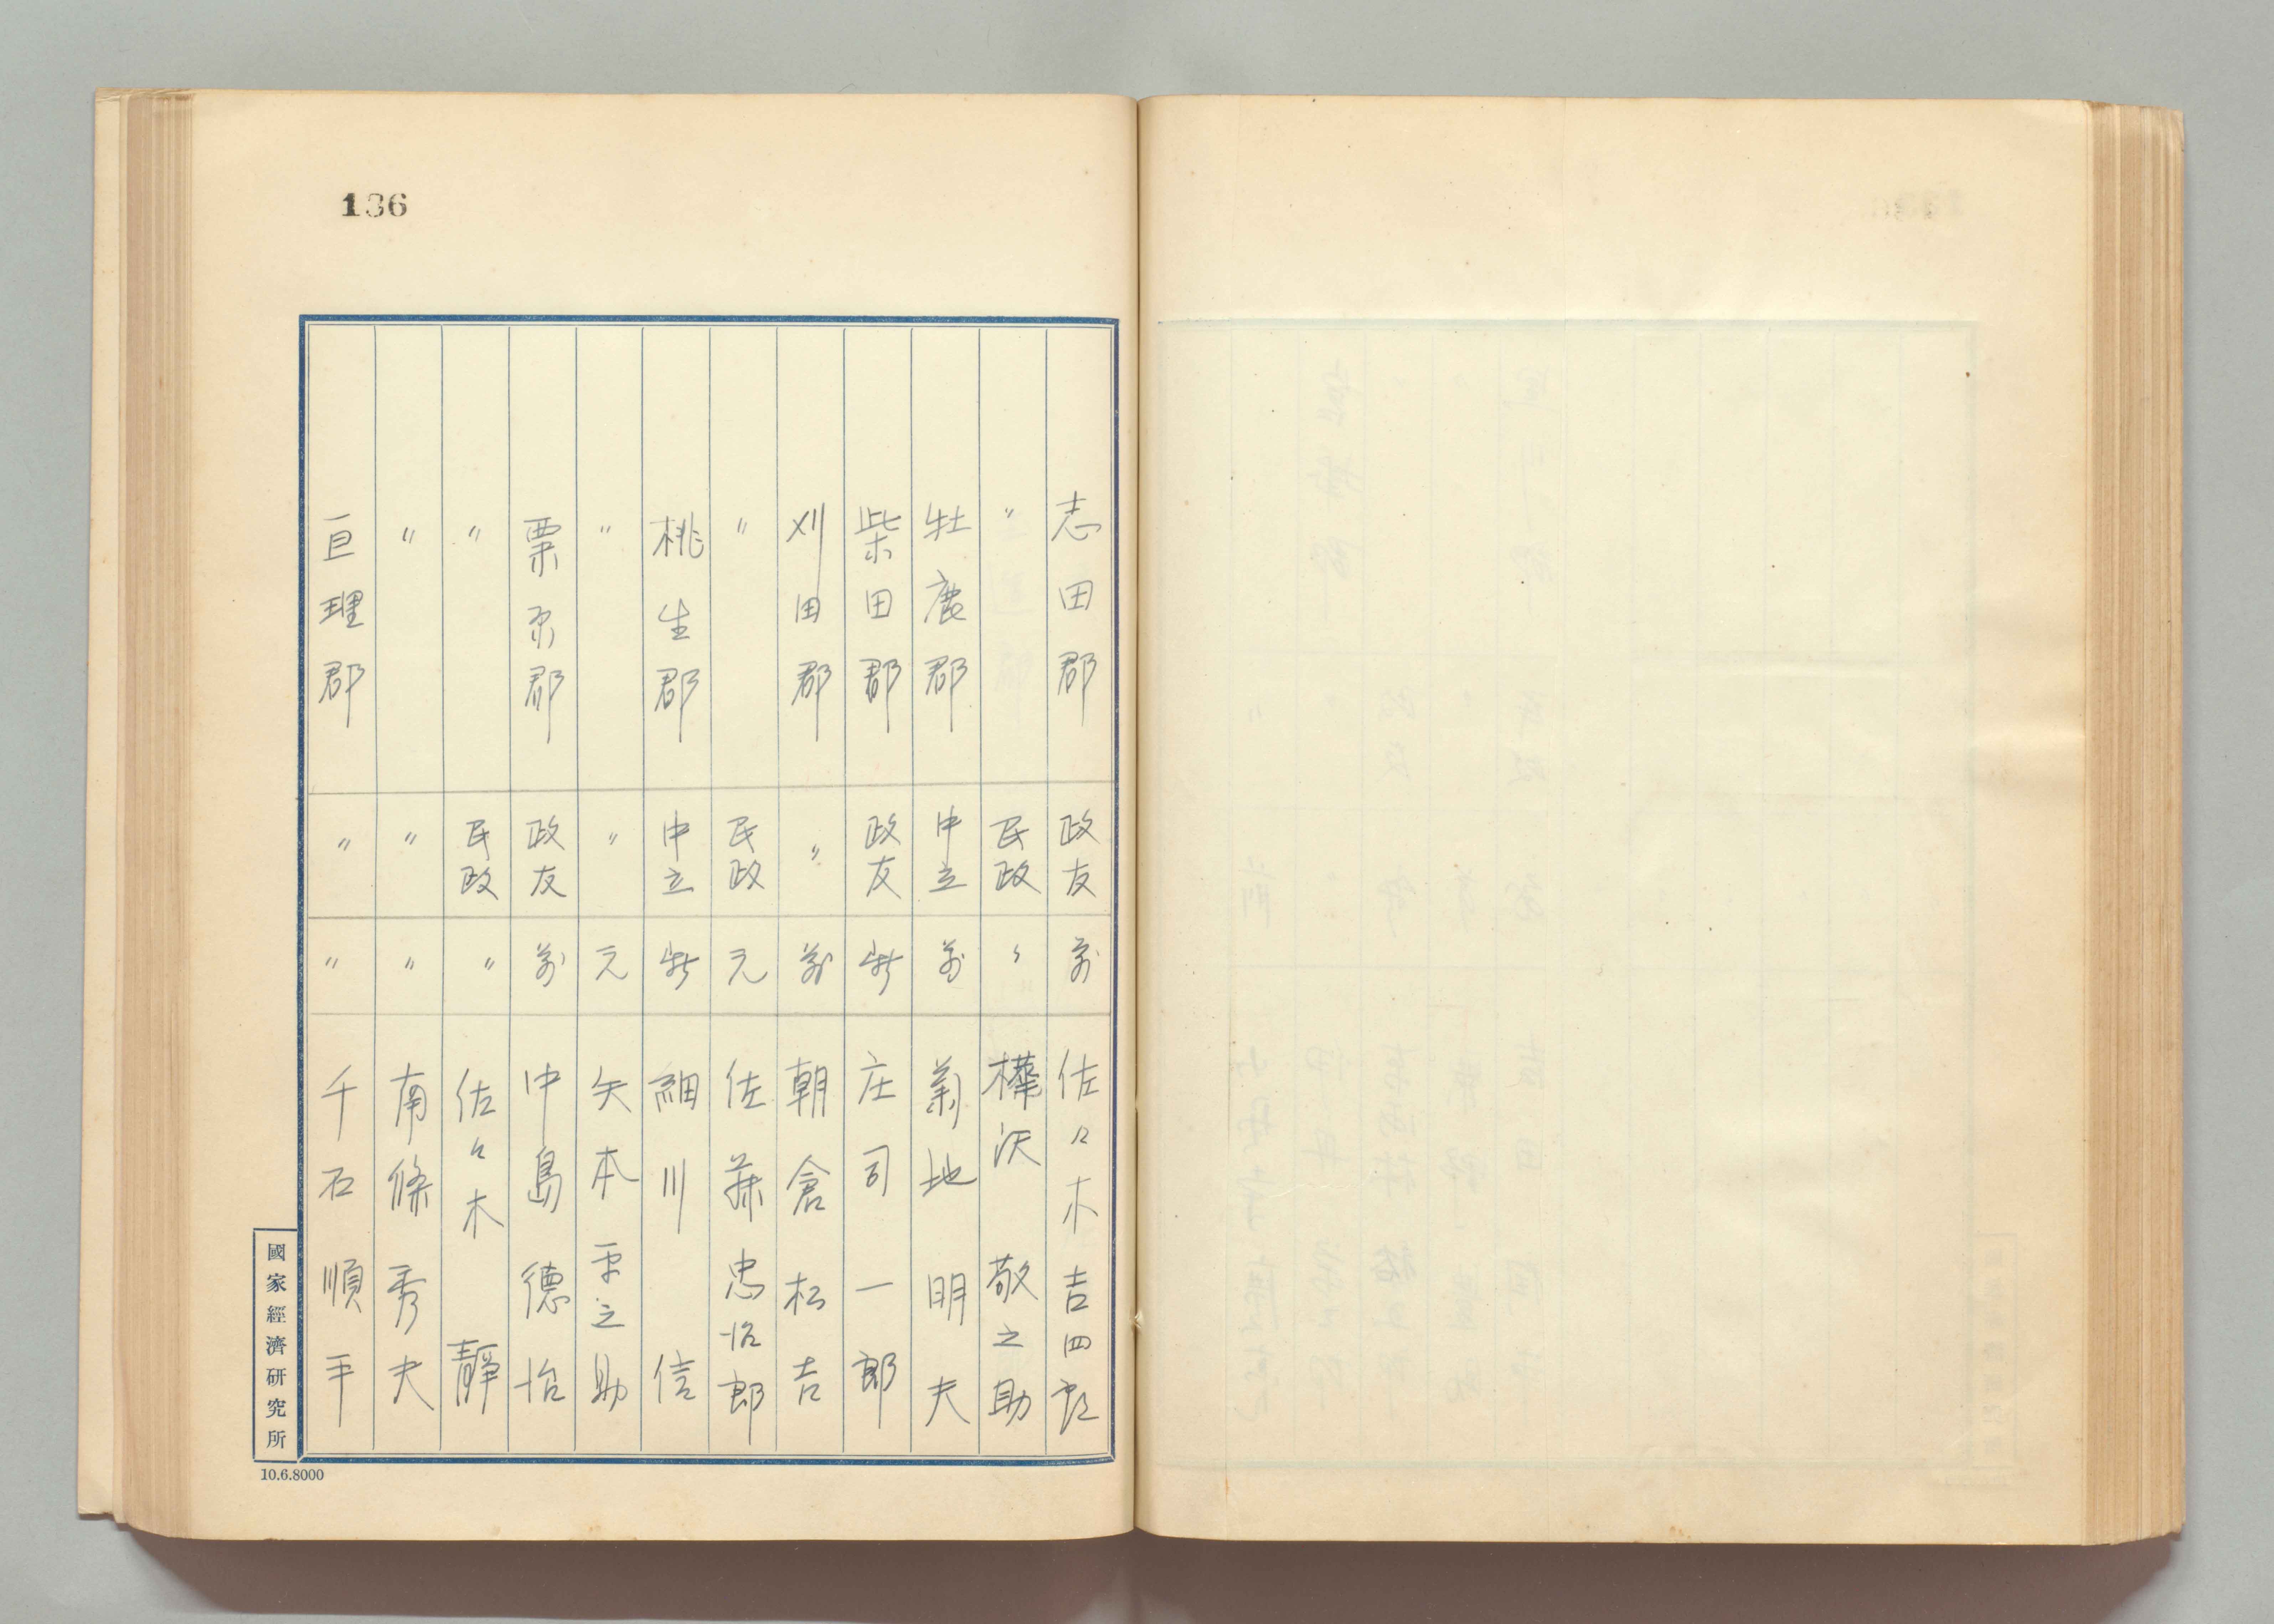 136
志田郡 政友 前 佐々木吉四郎
〃 民政 〃 樺沢敬之助
牡鹿郡 中立 前 菊地明夫
柴田郡 政友 新 庄司一郎
刈田郡 〃 前 朝倉松吉
〃 民政 元 佐藤忠治郎
桃生郡 中立 新 細川信
〃 〃 元 矢本平之助
栗原郡 政友 前 中島德治
〃 民政 〃 佐々木靜
〃 〃 〃 南條秀夫
亘理郡 〃 〃 千石順平
國家經濟研究所
10.6.8000